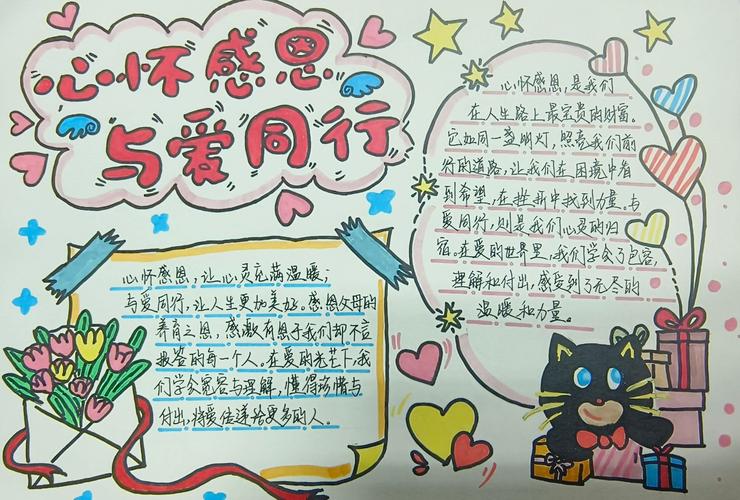 心怀感恩
与爱同行
心怀感恩,让心灵充满温暖;
与爱同行,让人生更加美好。感恩父母的
养育之恩,感激有恩于我们却不言
报答的每一个人。在爱的光芒下,我
们学会宽容与理解,懂得珍惜与
付出,将爱传递给更多的人。
心怀感恩,是我们
在人生路上最宝贵的财富。
它如同一盏明灯,照亮我们前
行的道路,让我们在困境中看
到希望,在挫折中找到力量。与
爱同行,则是我们心灵的归
宿。在爱的世界里,我们学会了包容,
理解和付出,感受到了无尽的
温暖和力量。